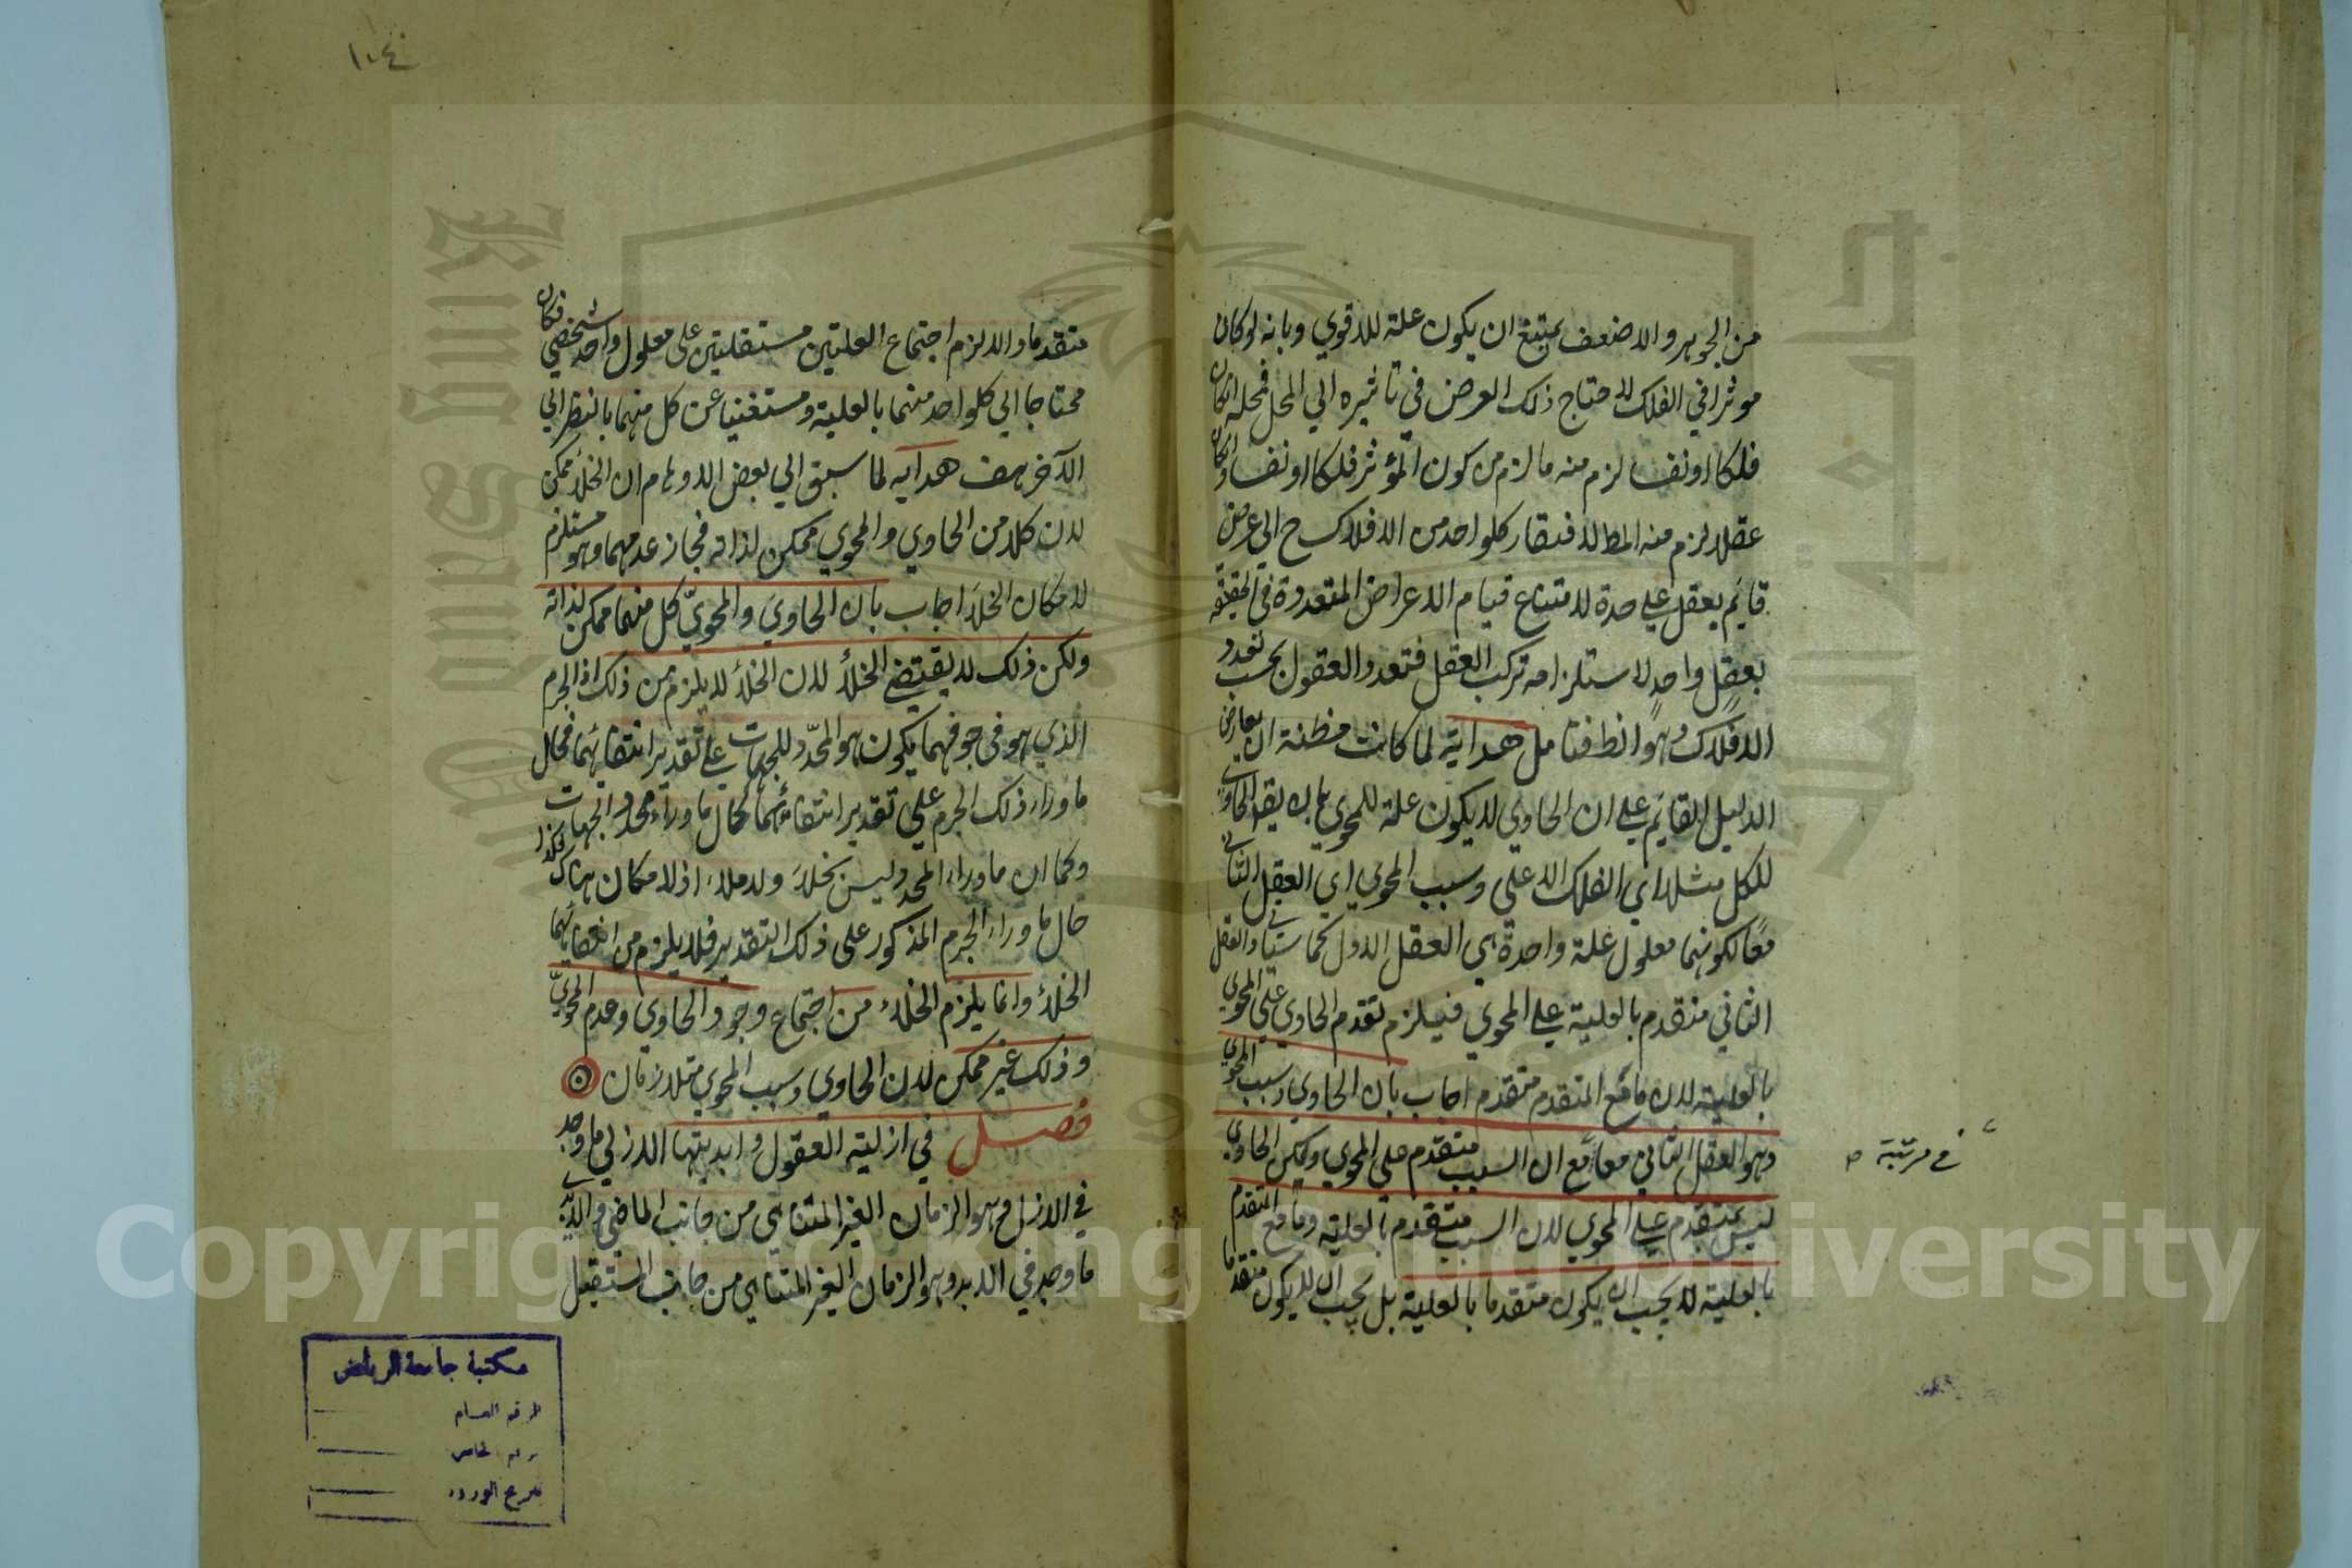 من الجوهر والاضعف يمتنع ان يكون علة للاقوي وبانه لو كان
موثرا في الفلك لاحتاج ذلك العرض في تاثيره الي المحل فمحله انكان
فلكا او نفسا لزم منه ما لزم من كون المؤثر فلكا او نفسا وانكان
عقلا لزم منه المط لافتقار كلواحد من الافلاك ح الي عرض
قايم بعقل علي حدة لامتناع قيام الاعراض المتعددة في الحقيقة
بعقل واحد لاستلزامه تركب العقل فتعدد العقول بحسب تعدد
الافلاك وهو المط فتامل هداية لما كانت مظنة ان يعارض
الدليل القايم علي ان الحاوي لا يكون علة للمحوي بان يقال الحاوي
للكل مثلا اي الفلك الاعلي وسبب المحوي اي العقل الثاني
معا لكونهما معلول علة واحدة هي العقل الاول كما ستاتي والعقل
الثاني متقدم بالعلية علي المحوي فيلزم تقدم الحاوي علي المحوي
بالعلية لان ما مع المتقدم متقدم اجاب بان الحاوي وسبب المحوي
وهو العقل الثاني معا مع ان السبب متقدم علي المحوي ولكن الحاوي
في مرتبة
ليس بمتقدم علي المحوي لان السبب متقدم بالعلية وما مع المتقدم
بالعلية لا يجب ان يكون متقدما بالعلية بل يجب ان لا يكون متقدما
١٠٤
متقدما والا لزم اجتماع العلتين مستقلتين علي معلول واحد شخصي فكان
محتاجا الي كلواحد منهما بالعلية ومستغنيا عن كل منهما بالنظر الي
الآخر هف هدايه لما سبق الي بعض الاوهام ان الخلأ ممكن
لان كلا من الحاوي والمحوي ممكن لذاته فجاز عدمهما وهو مستلزم
لامكان الخلأ اجاب بان الحاوي والمحوي كل منهما ممكن لذاته
ولكن ذلك لا يقتضي الخلأ لان الخلأ لا يلزم من ذلك اذ الجرم
الذي هو في جوفهما يكون هو المحدد للجهات علي تقدير انتفائهما فحال
ما وراء ذلك الجرم علي تقدير انتفائهما كحال ما وراء محدد الجهات
وكما ان ما وراء المحدد ليس بخلأ ولا ملاء اذ لا مكان هناك فكذا
حال ما وراء الجرم المذكور علي ذلك التقدير فلا يلزم من انتفائهما
الخلاء وانما يلزم الخلاء من اجتماع وجود الحاوي وعدم المحوي
وذلك غير ممكن لان الحاوي وسبب المحوي متلازمان
فصل في ازلية العقول وابديتها الازلي ما وجد
في الازل وهو الزمان الغير المتناهي من جانب الماضي والابدي
ما وجد في الابد وهو الزمان الغير المتناهي من جانب المستقبل
مكتبة جامعة الرياض
الرقم العام
رقم الخاص
تاريخ الورود
Copyright © King Saud University